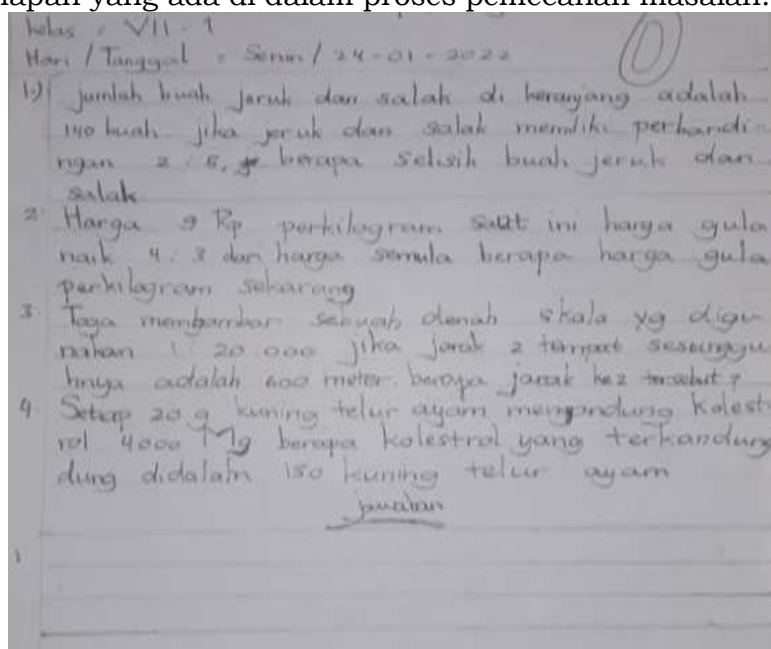 napan yang ada di dalam proses pemecahan masalah.
kelas : VII - 1
Hari / Tanggal : Senin / 24 - 01 - 2022
0
1.) jumlah buah jeruk dan salak di keranjang adalah
140 buah. jika jeruk dan salak memiliki perbandi-
ngan 2 : 5, berapa selisih buah jeruk dan
salak
2. Harga 9 Rp perkilogram saat ini harga gula
naik 4 : 3 dari harga semula berapa harga gula
perkilogram sekarang
3. menbambar sebuah denah skala yg digu
nakan 1 : 20 000 jika jarak 2 tempat sesunggu
hnya adalah 600 meter. berapa jarak ke2 tersebut ?
4. Setiap 20 g kuning telur ayam mengandung Kolest
rol 4000 Mg berapa kolestrol yang terkandung
dung didalam 150 kuning telur ayam
jawaban
1